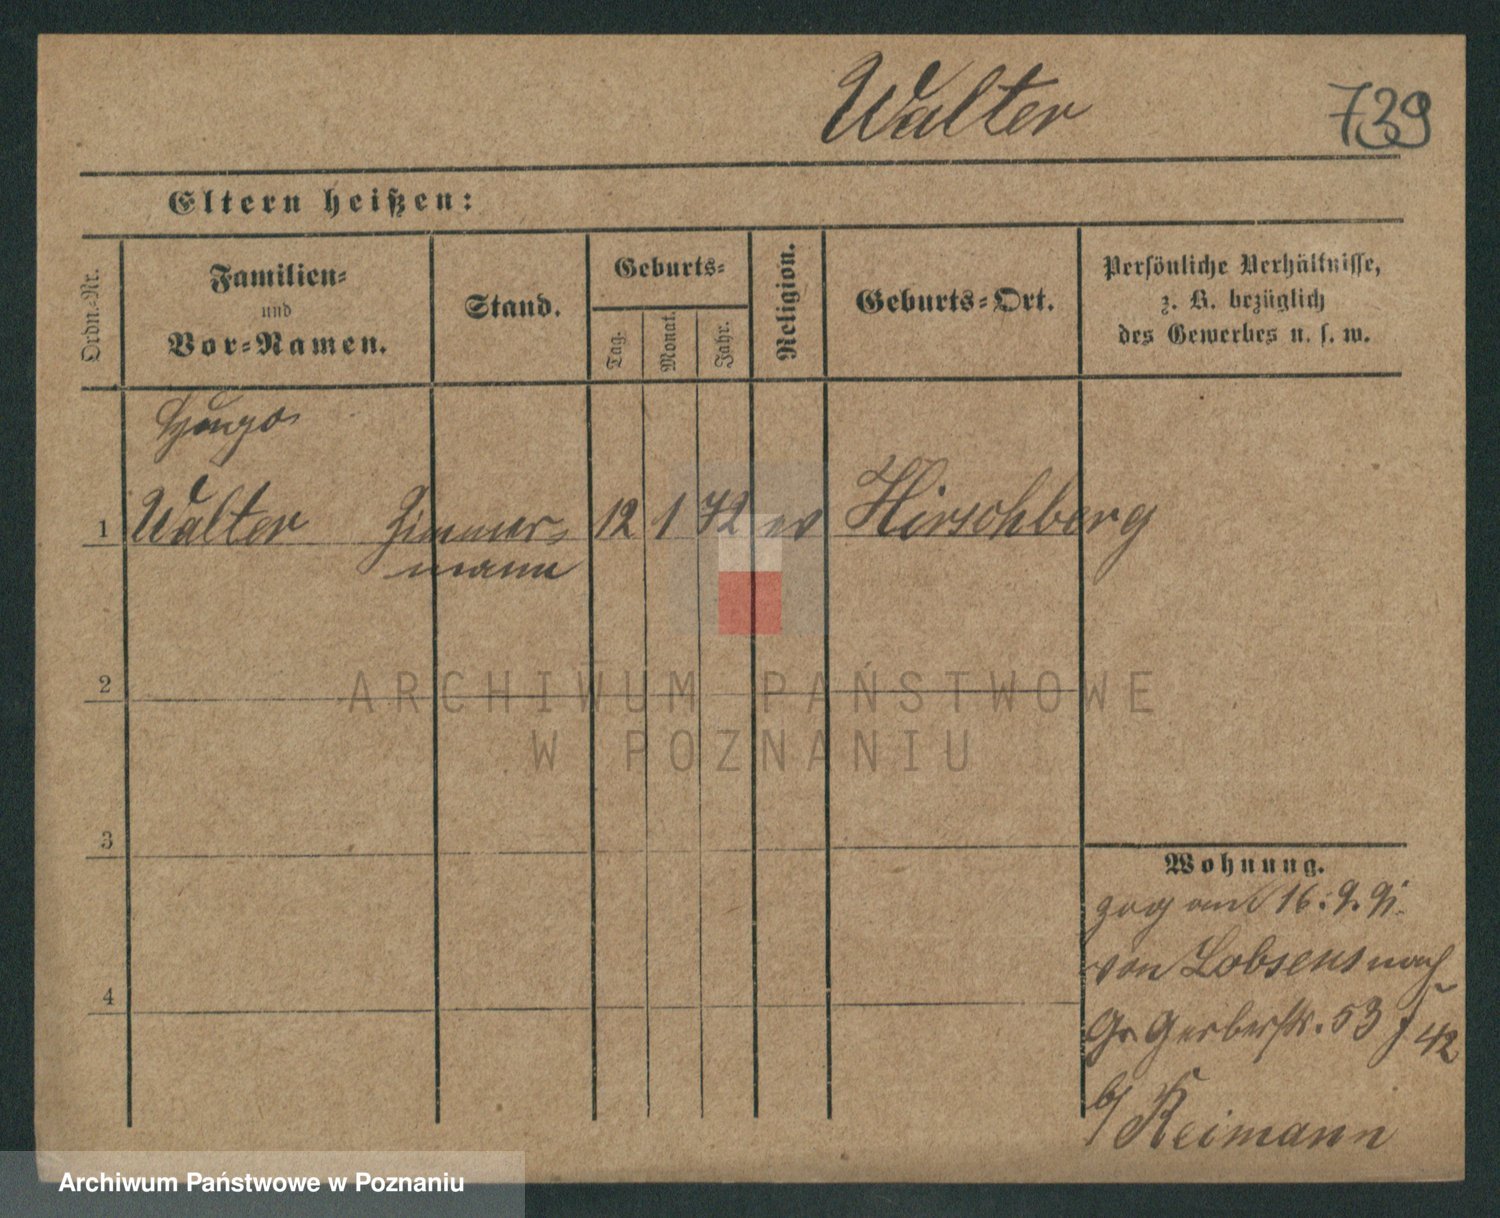 Walter
739
Eltern heißen:
Ordn.-Nr.
Familien-
und
Vor-Namen.
Stand.
Geburts-
Tag.
Monat.
Jahr.
Religion.
Geburts-Ort.
Persönliche Verhältnisse,
z. B. bezüglich
des Gewerbes u. s. w.
Hugo
1 Walter Zimmer- 12 1 72 ev Hirschberg
mann
2
ARCHIWUM PAŃSTWOWE
W POZNANIU
3
Wohnung.
zog am 16.9.91.
von Lobsens nach
4
Gr Gerberstr. 53
42
b/ Reimann
Archiwum Państwowe w Poznaniu